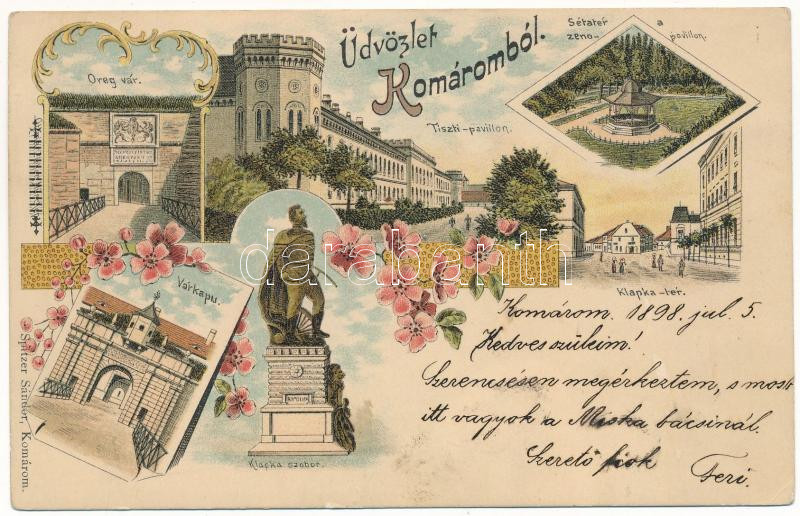 Üdvözlet
Komáromból.
Öreg vár.
Tiszti-pavillon.
Sétatér a
zene-pavillon.
Klapka-tér.
Várkapu.
Klapka szobor.
Spitzer Sándor, Komárom.
darabanth
Komárom, 1898. jul. 5.
Kedves szüleim!
Szerencsésen megérkeztem, s most
itt vagyok a Miska bácsinál.
Szerető fiok
Feri.